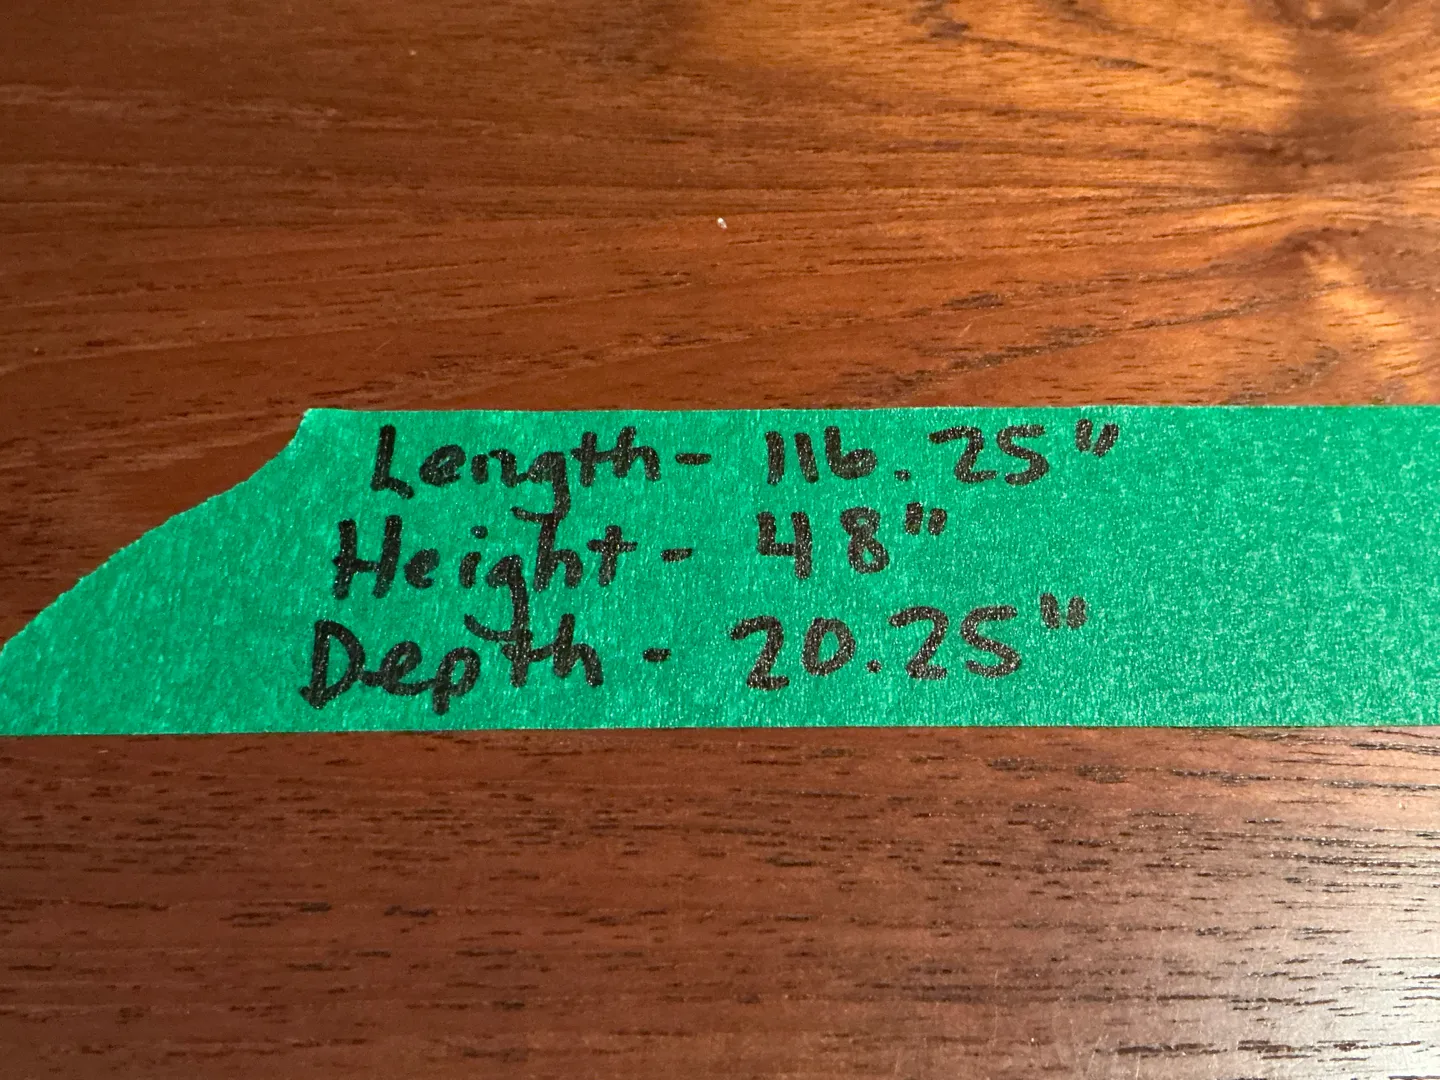 Length- 116.25"
Height- 48"
Depth- 20.25"